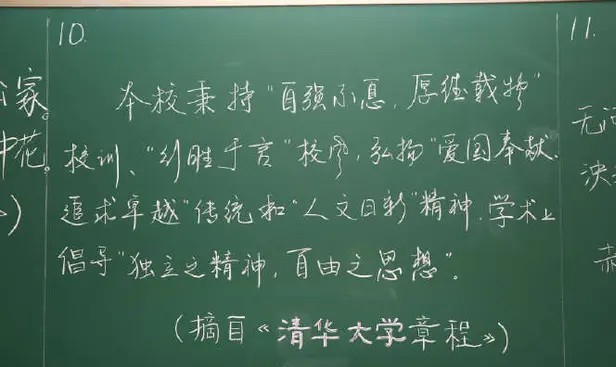 10.
11.
本校秉持“自强不息，厚德载物”
校训、“行胜于言”校风，弘扬“爱国奉献、
追求卓越”传统和“人文日新”精神。学术上
倡导“独立之精神，自由之思想”。
（摘自《清华大学章程》）
家。
中花。
）
无
泱